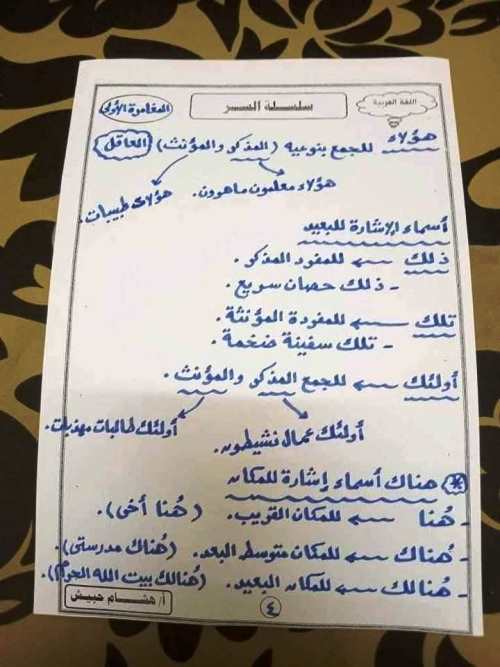 اللغة العربية
سلسلة السر
المغامرة الأولى
هؤلاء للجمع بنوعيه (المذكر والمؤنث) العاقل
هؤلاء معلمون ماهرون.
هؤلاء طبيبات.
أسماء الإشارة للبعيد
ذلك ← للمفرد المذكر.
- ذلك حصان سريع.
تلك ← للمفردة المؤنثة.
- تلك سفينة ضخمة.
أولئك ← للجمع المذكر والمؤنث.
أولئك عمال نشيطون.
أولئك طالبات مهذبات.
* هناك أسماء إشارة للمكان
- هُنا ← للمكان القريب. (هُنا أخى).
- هُناك ← للمكان متوسط البعد. (هُناك مدرستى).
- هُنالك ← للمكان البعيد. (هُنالك بيت الله الحرام).
أ/ هشام حبيش
٤